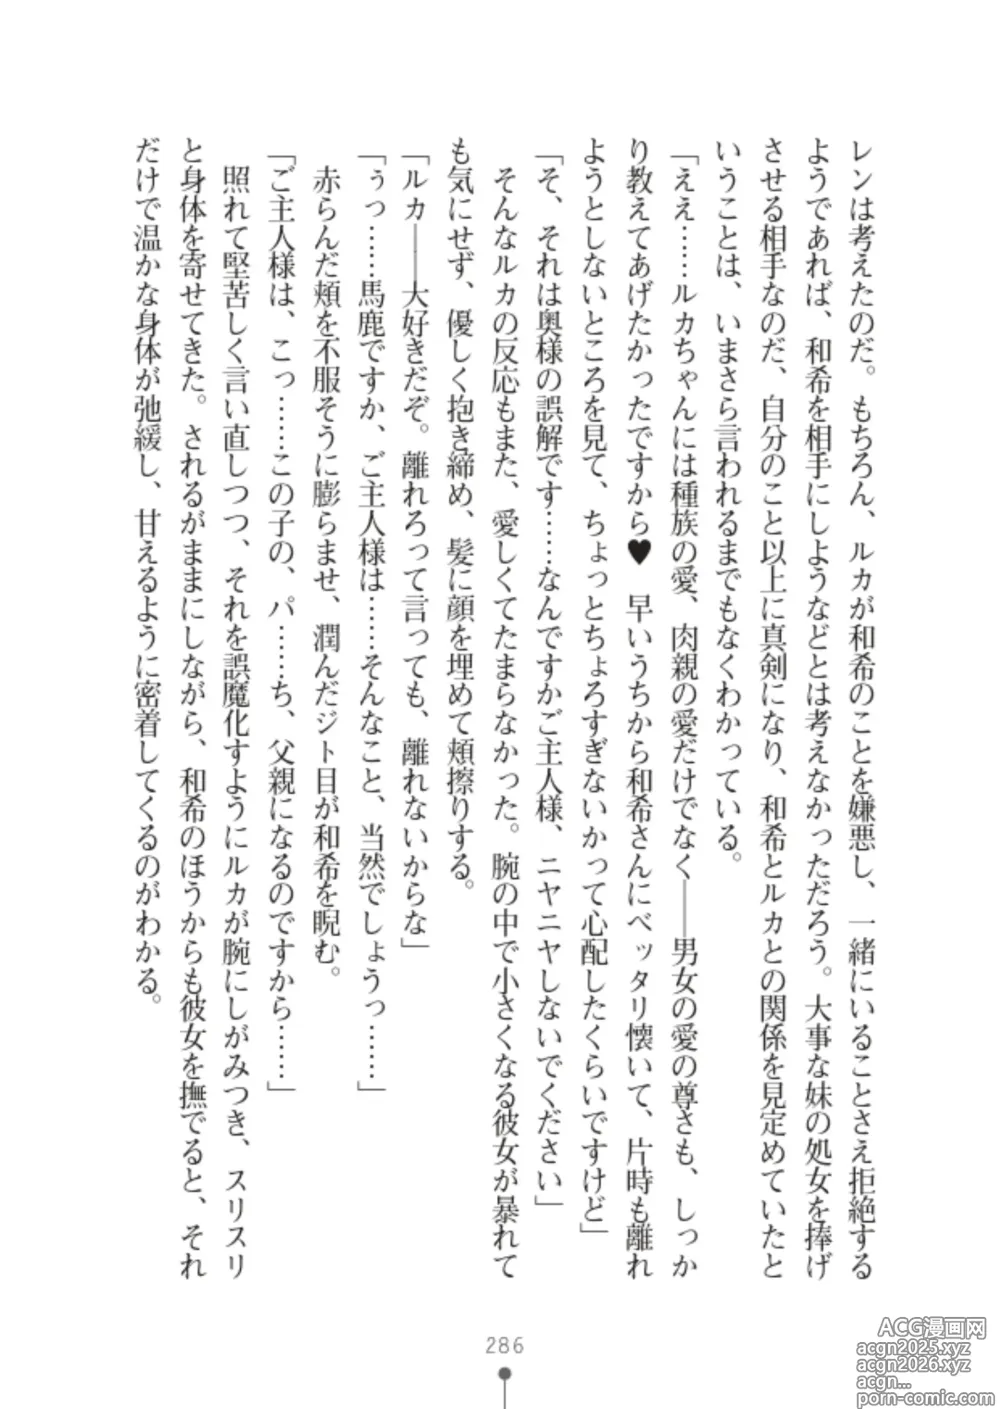 レンは考えたのだ。もちろん、ルカが和希のことを嫌悪し、一緒にいることさえ拒絶する
ようであれば、和希を相手にしようなどとは考えなかっただろう。大事な妹の処女を捧げ
させる相手なのだ、自分のこと以上に真剣になり、和希とルカとの関係を見定めていたと
いうことは、いまさら言われるまでもなくわかっている。
「ええ……ルカちゃんには種族の愛、肉親の愛だけでなく――男女の愛の尊さも、しっか
り教えてあげたかったですから♥　早いうちから和希さんにベッタリ懐いて、片時も離れ
ようとしないところを見て、ちょっとちょろすぎないかって心配したくらいですけど」
「そ、それは奥様の誤解です……なんですかご主人様、ニヤニヤしないでください」
　そんなルカの反応もまた、愛しくてたまらなかった。腕の中で小さくなる彼女が暴れて
も気にせず、優しく抱き締め、髪に顔を埋めて頬擦りする。
「ルカ――大好きだぞ。離れろって言っても、離れないからな」
「ぅっ……馬鹿ですか、ご主人様は……そんなこと、当然でしょうっ……」
　赤らんだ頬を不服そうに膨らませ、潤んだジト目が和希を睨む。
「ご主人様は、こっ……この子の、パ……ち、父親になるのですから……」
　照れて堅苦しく言い直しつつ、それを誤魔化すようにルカが腕にしがみつき、スリスリ
と身体を寄せてきた。されるがままにしながら、和希のほうからも彼女を撫でると、それ
だけで温かな身体が弛緩し、甘えるように密着してくるのがわかる。
286
ACG漫画网
acgn2025.xyz
acgn2026.xyz
acgn...
porn-comic.com